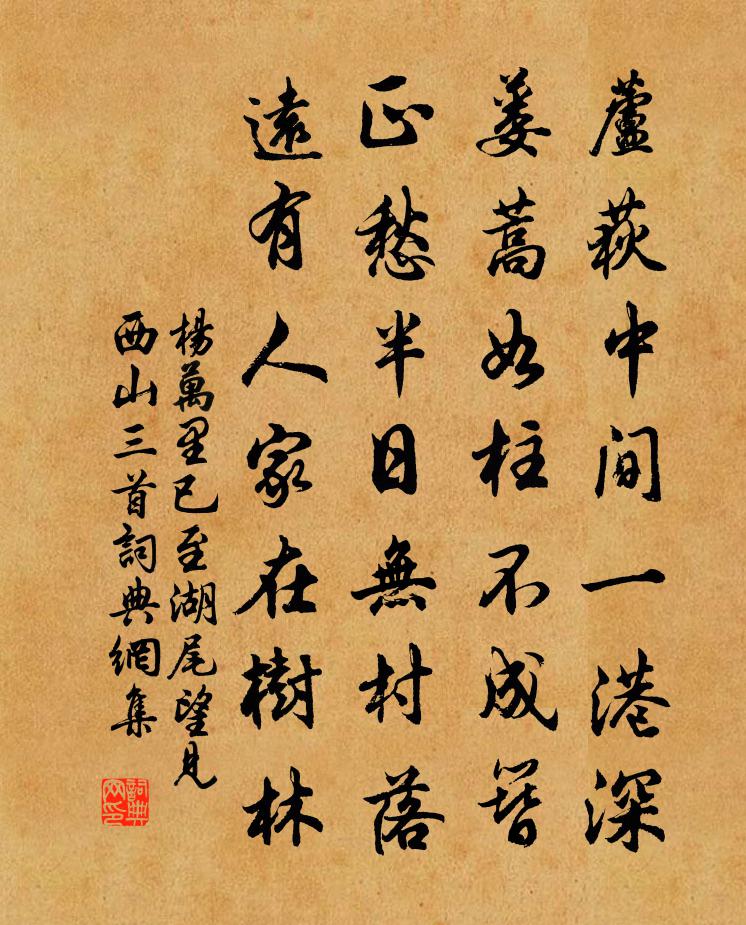 蘆荻中間一港深
蔞蒿如柱不成簪
正愁半日無村落
遠有人家在樹林
楊萬里已至湖尾望見
西山三首詞典網集
詞典網印